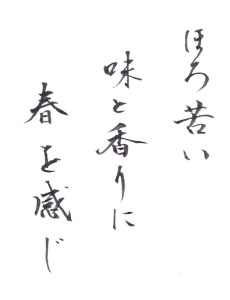 ほろ苦い
味と香りに
春を感じ